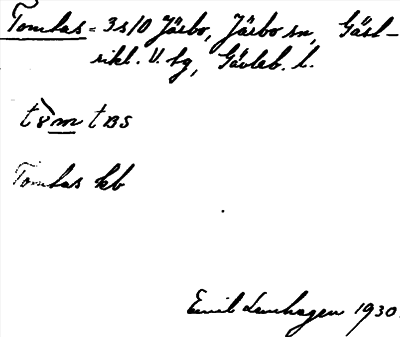 Tomtas = 3s/0 Järbo, Järbo sn, Gästrikl. V. tg, Gävleb. l.
Tomtas kb
Emil Lenhagen 1930.